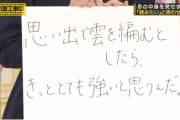 の中身を見せず
「読みたい」と思わせ
思い出で雲を編むと
したら、
きっととても強いと思うんだ。